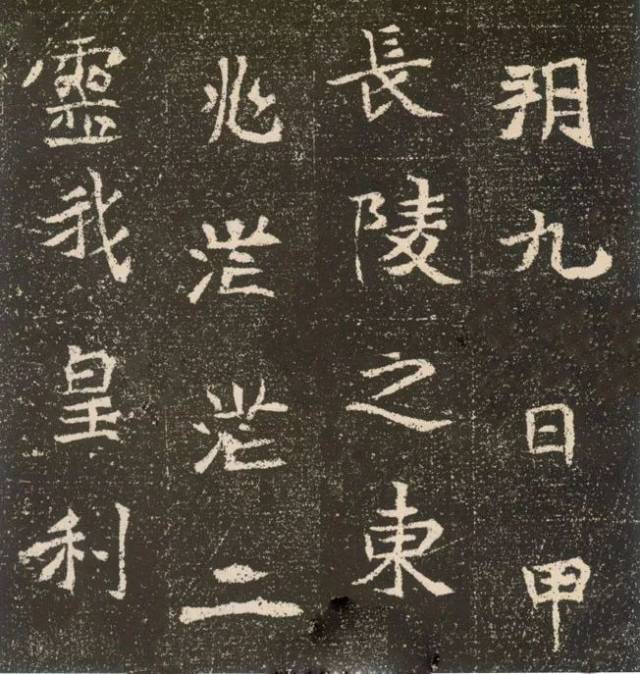 朔九日甲
長陵之東
兆茫茫二
靈我皇利